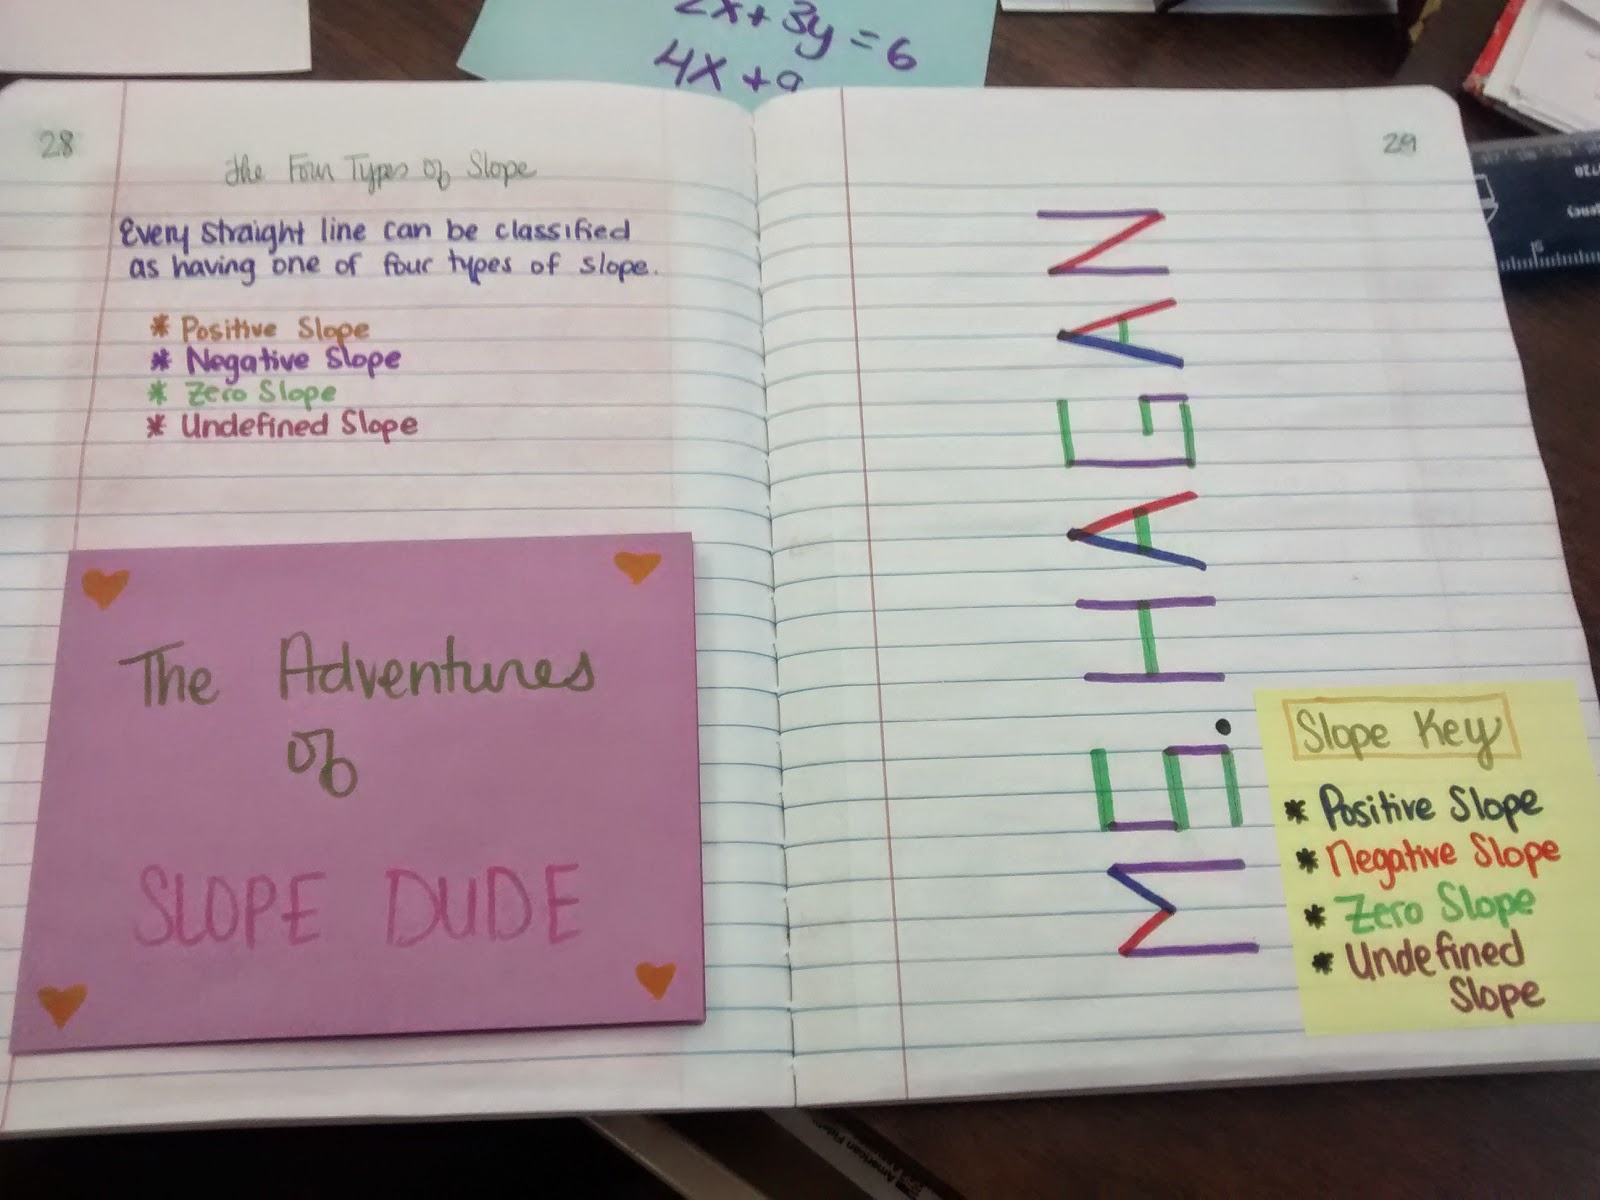 2x + 3y = 6
4x +
28
The Four Types of Slope
Every straight line can be classified
as having one of four types of slope.
* Positive Slope
* Negative Slope
* Zero Slope
* Undefined Slope
The Adventures
of
SLOPE DUDE
29
MS. HAGAN
Slope Key
* Positive Slope
* Negative Slope
* Zero Slope
* Undefined
Slope